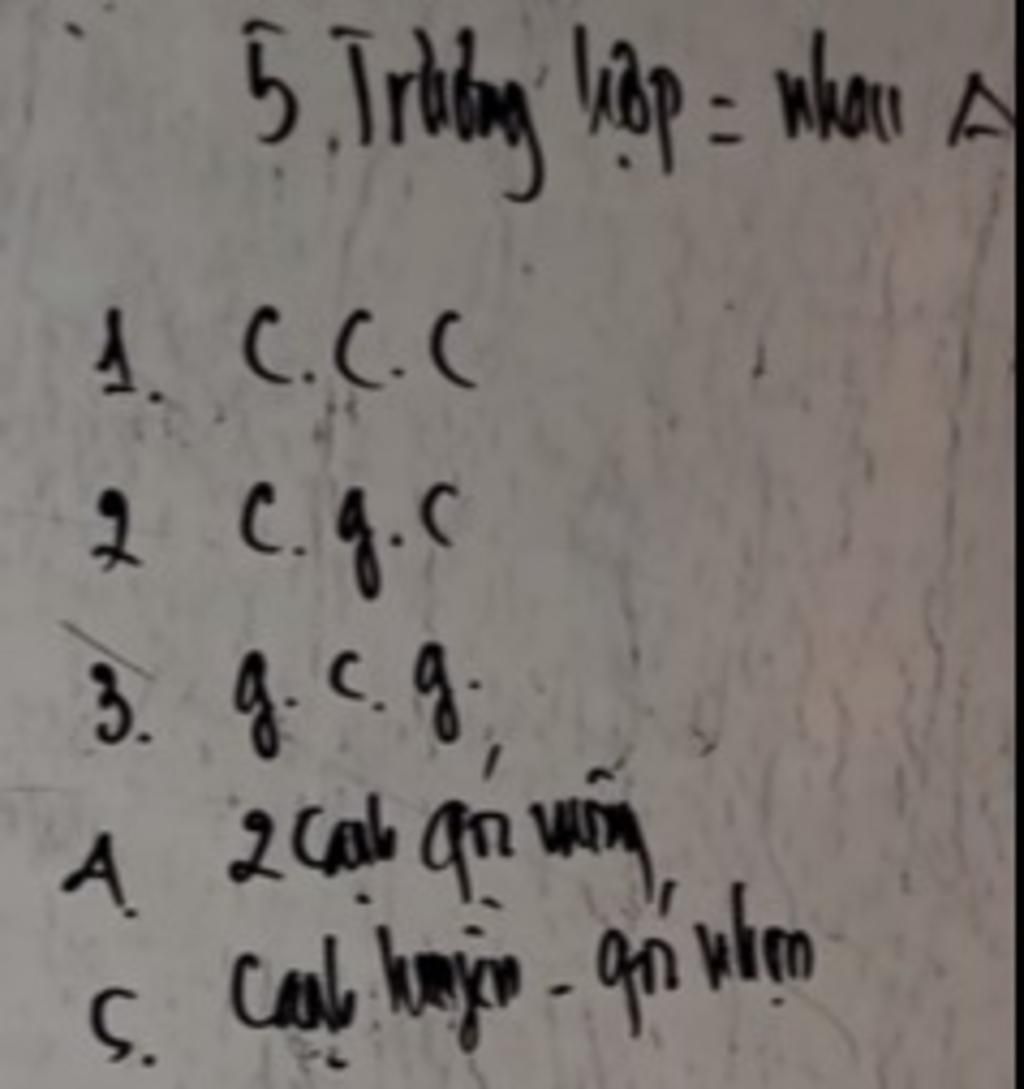 5. Trường hợp = nhau Δ
1. C. C. C
2 C. g. C
3. g. c. g.
4. 2 cạnh góc vuông
5. Cạnh huyền - góc nhọn